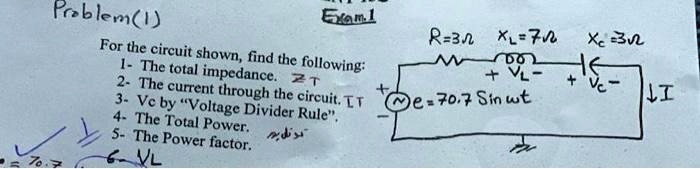 Problem(1)
Exam.1
For the circuit shown, find the following:
1- The total impedance. ZT
2- The current through the circuit. IT
3- Vc by "Voltage Divider Rule".
4- The Total Power.
5- The Power factor.
6- VL
= 70.7
R=3Ω XL=7Ω Xc=3Ω
+ VL - + Vc -
+
e=70.7 Sin wt
-
↓I